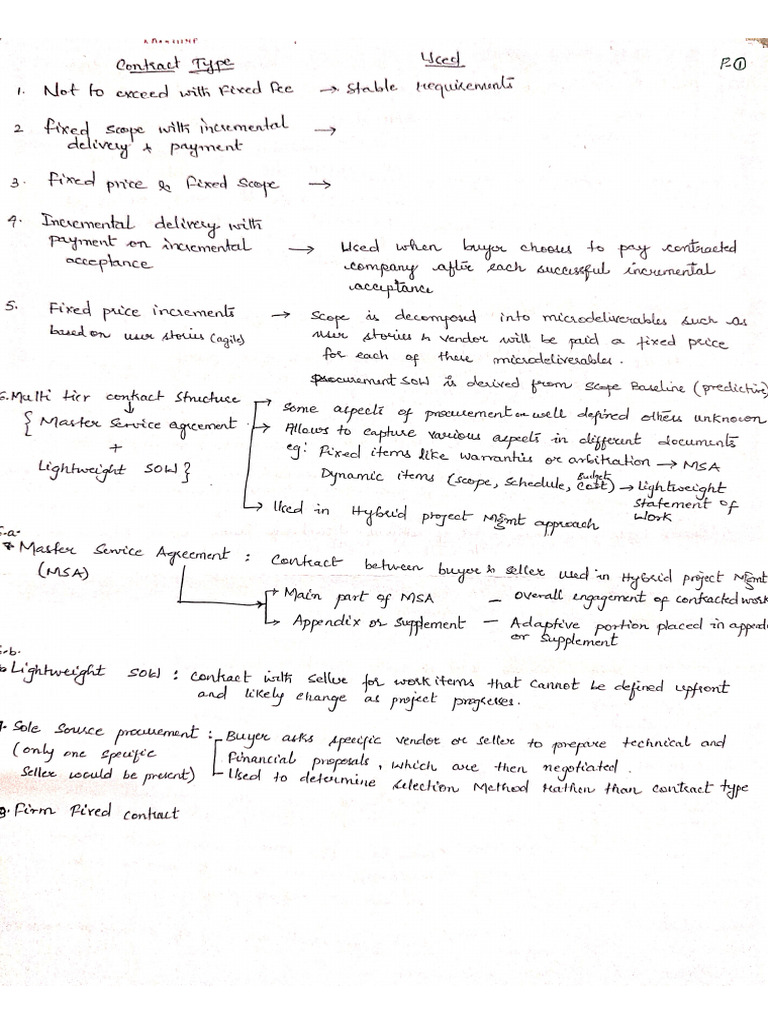 Contract Type Used P.①
1. Not to exceed with Fixed Fee → Stable requirements
2 Fixed scope with incremental →
delivery & payment
3. Fixed price & Fixed Scope →
4. Incremental delivery with
payment on incremental
acceptance
→ Used when buyer chooses to pay contracted
company after each successful incremental
acceptance
5. Fixed price increments
based on user stories (agile)
→ Scope is decomposed into microdeliverables such as
user stories & vendor will be paid a fixed price
for each of these microdeliverables.
procurement SOW is derived from Scope Baseline (predictive)
6. Multi tier contract structure
{ Master Service agreement
+
Lightweight SOW }
→ Some aspects of procurement well defined others unknown
→ Allows to capture various aspects in different documents
eg: Fixed items like warranties or arbitration → MSA
Dynamic items (scope, schedule, Budget) → Lightweight
Statement of
Work
→ Used in Hybrid project Mgmt approach
Master Service Agreement : Contract between buyer & seller used in Hybrid project Mgmt
(MSA)
→ Main part of MSA – overall engagement of contracted work
→ Appendix or Supplement – Adaptive portion placed in
or Supplement
Lightweight SOW : Contract with seller for work items that cannot be defined upfront
and likely change as project progresses.
7. Sole Source procurement :
(only one specific
seller would be present)
Buyer asks specific vendor or seller to prepare technical and
Financial proposals, which are then negotiated.
Used to determine Selection Method rather than contract type
Firm Fixed contract